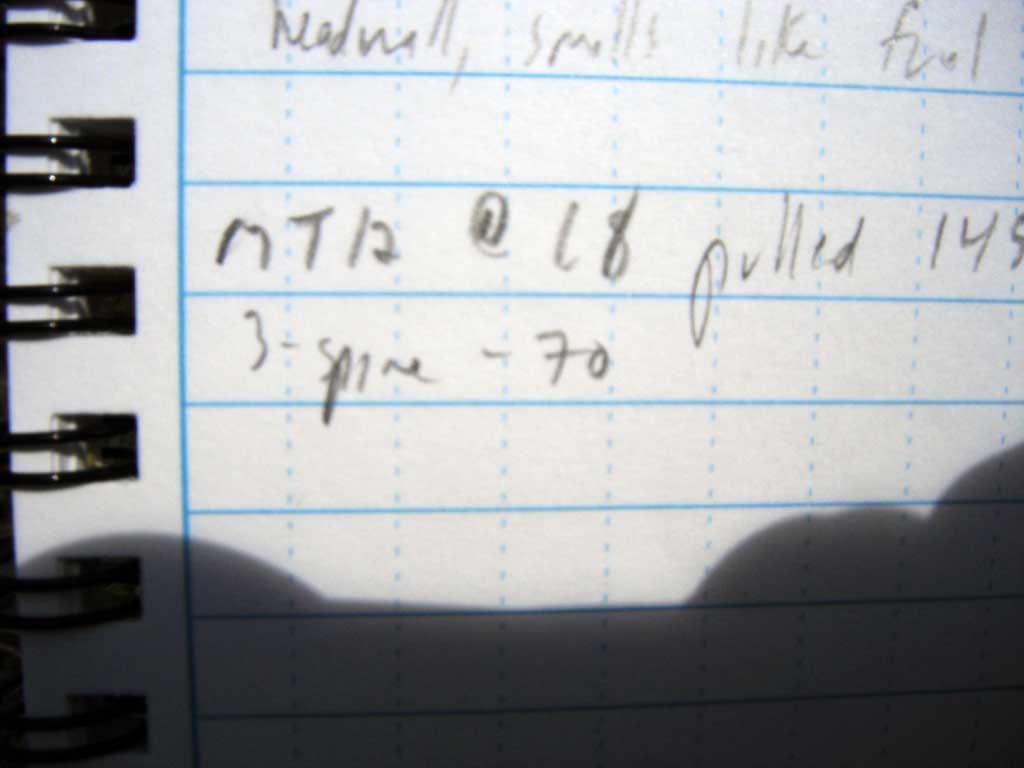 headwall, smells like fuel
MT12 @ 18 pulled 145
3-spine - 70